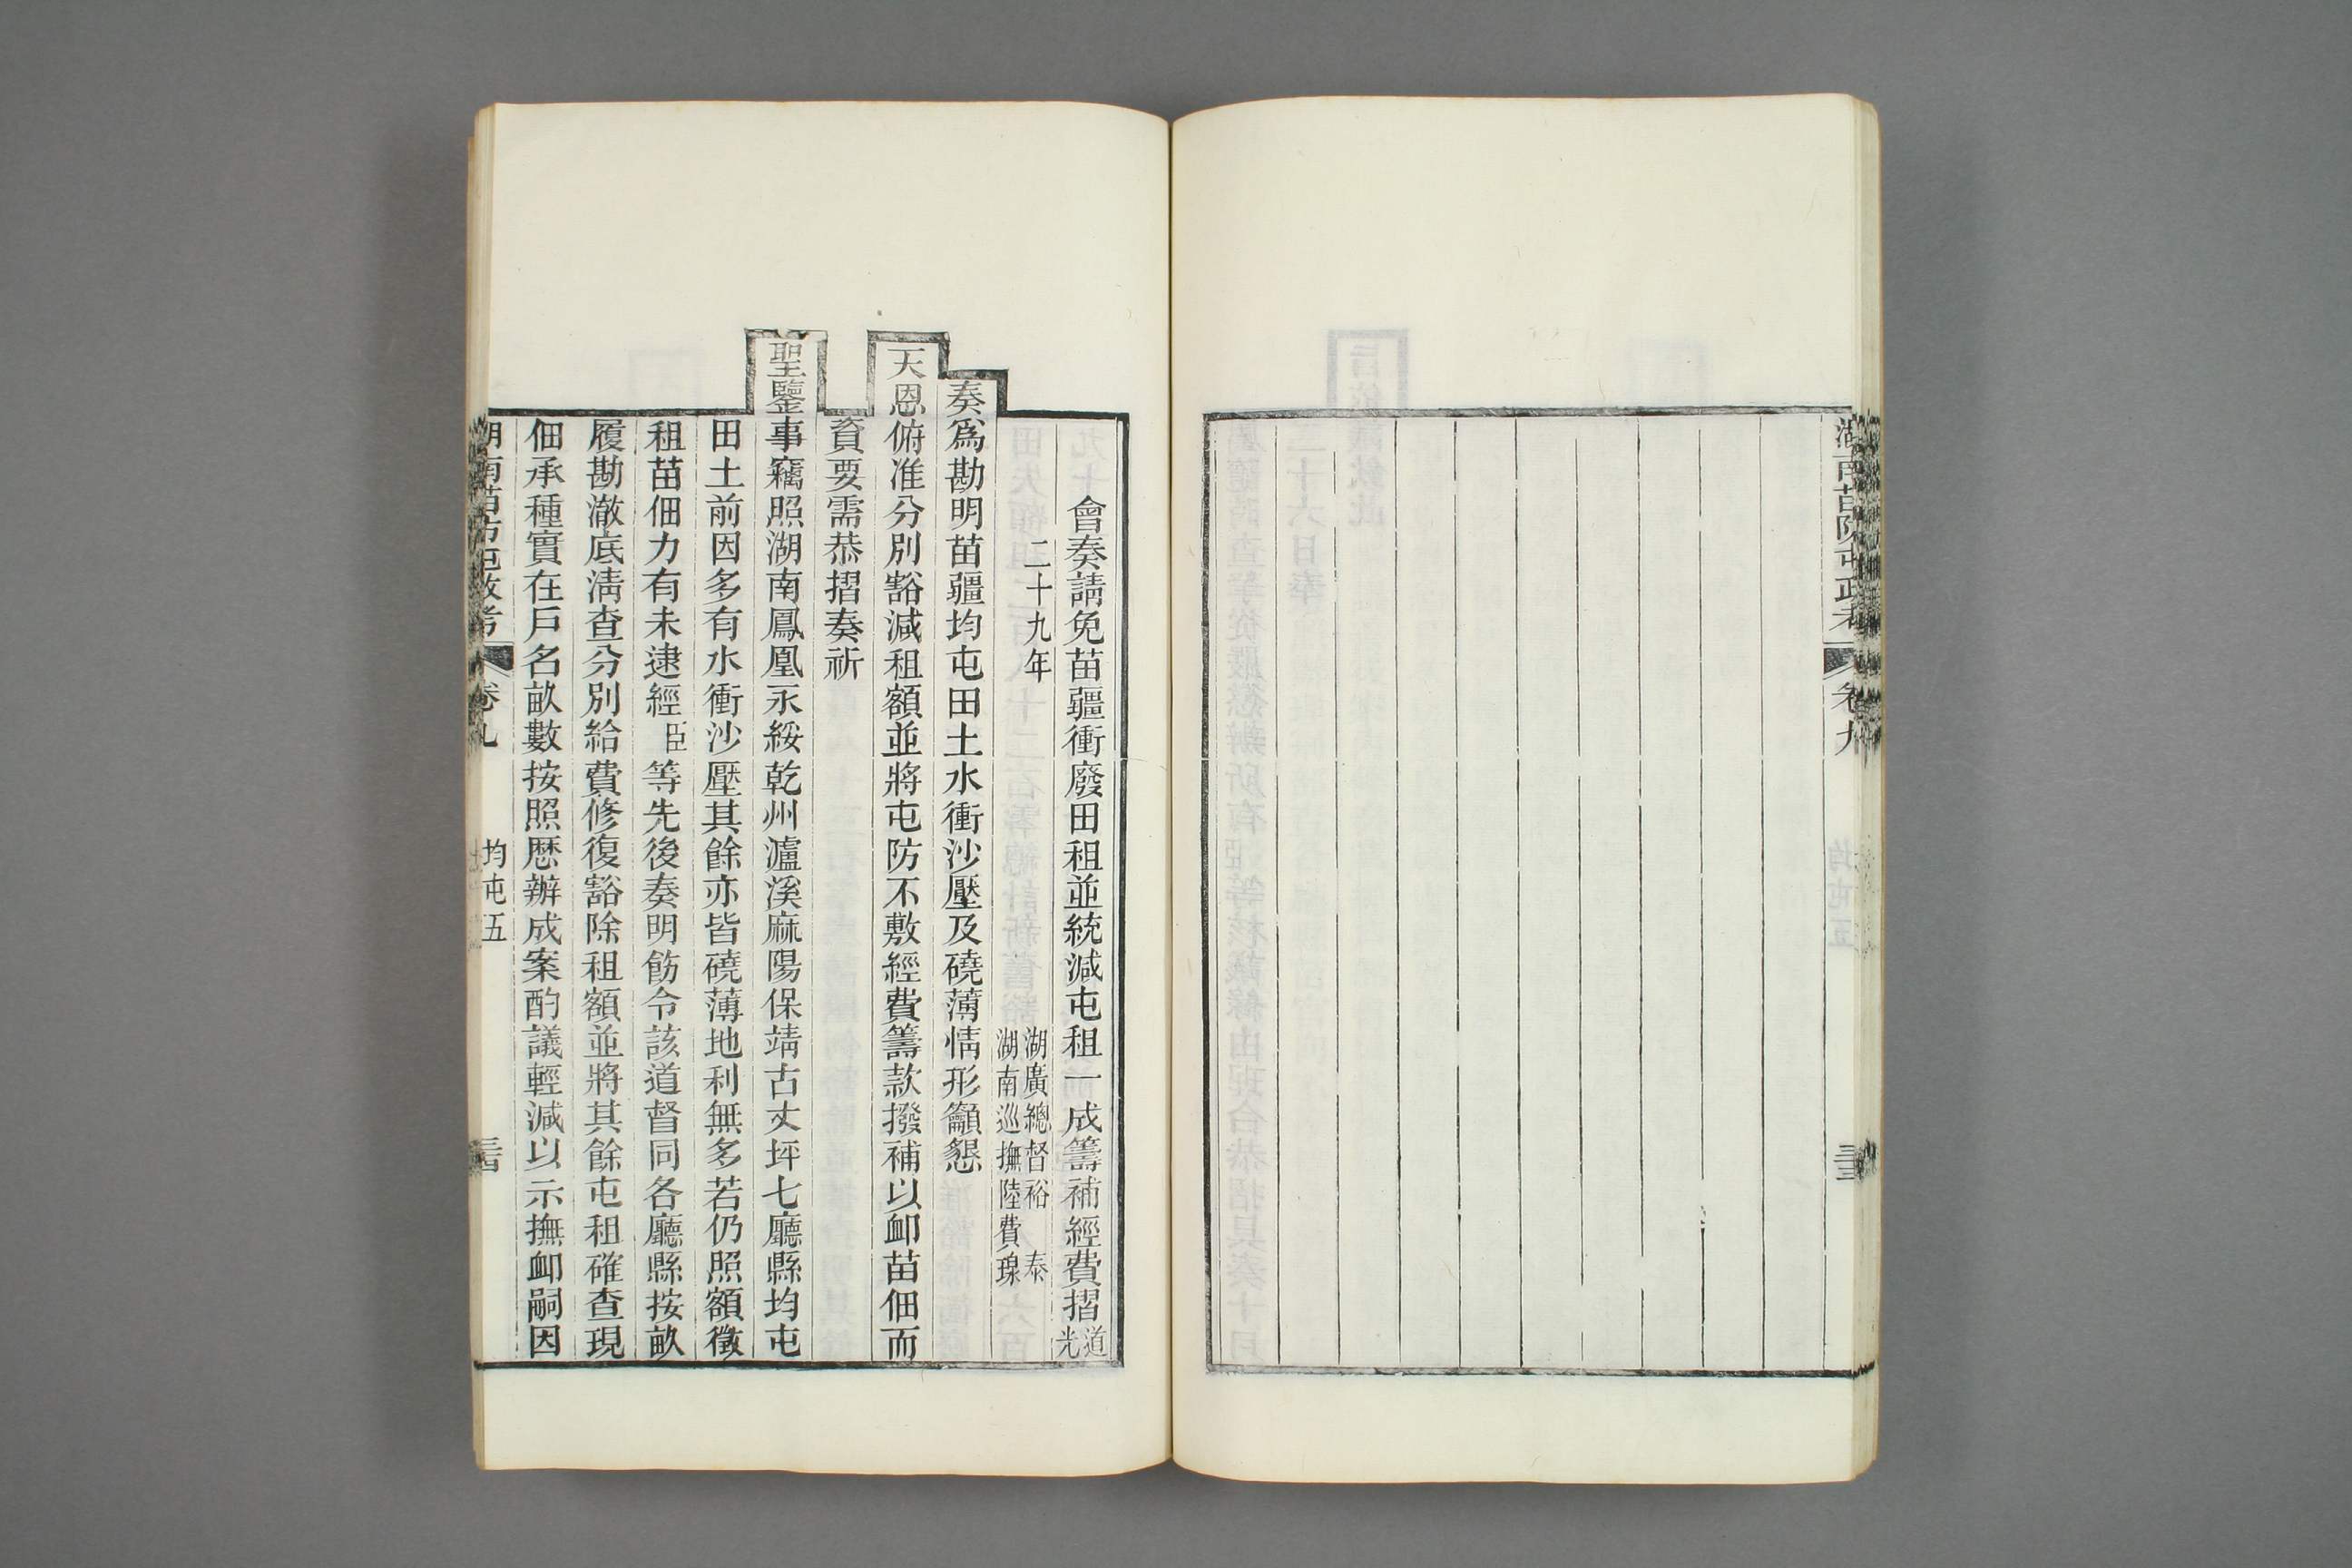 湖南苗防屯政考
卷九
均屯五
會奏請免苗疆衝廢田租並統減屯租一成籌補經費摺道光
二十九年
湖廣總督裕　泰
湖南巡撫陸費瑔
奏爲勘明苗疆均屯田土水衝沙壓及磽薄情形籲懇
天恩俯准分別豁減租額並將屯防不敷經費籌款撥補以卹苗佃而
資要需恭摺奏祈
聖鑒事竊照湖南鳳凰永綏乾州瀘溪麻陽保靖古丈坪七廳縣均屯
田土前因多有水衝沙壓其餘亦皆磽薄地利無多若仍照額徵
租苗佃力有未逮經臣等先後奏明飭令該道督同各廳縣按畝
履勘澈底清查分別給費修復豁除租額並將其餘屯租確查現
佃承種實在戶名畝數按照歷辦成案酌議輕減以示撫卹嗣因
湖南苗防屯政考
卷九
均屯五